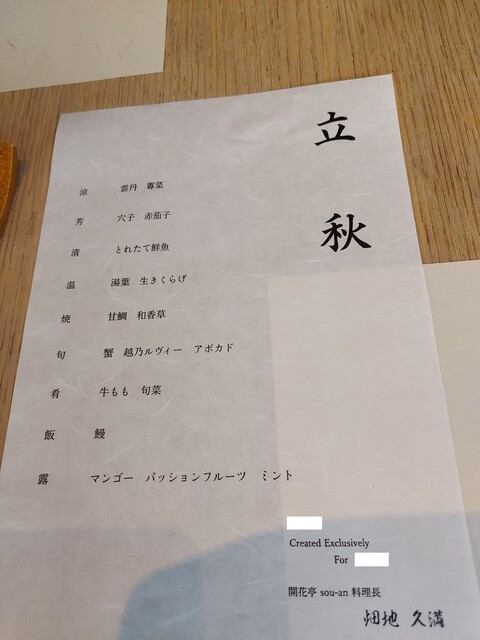 立秋
涼 雲丹 蓴菜
芳 穴子 赤茄子
清 とれたて鮮魚
温 湯葉 生きくらげ
焼 甘鯛 和香草
旬 蟹 越乃ルヴィー アボカド
肴 牛もも 旬菜
飯 鰻
露 マンゴー パッションフルーツ ミント
Created Exclusively
For
開花亭 sou-an 料理長
畑地 久満